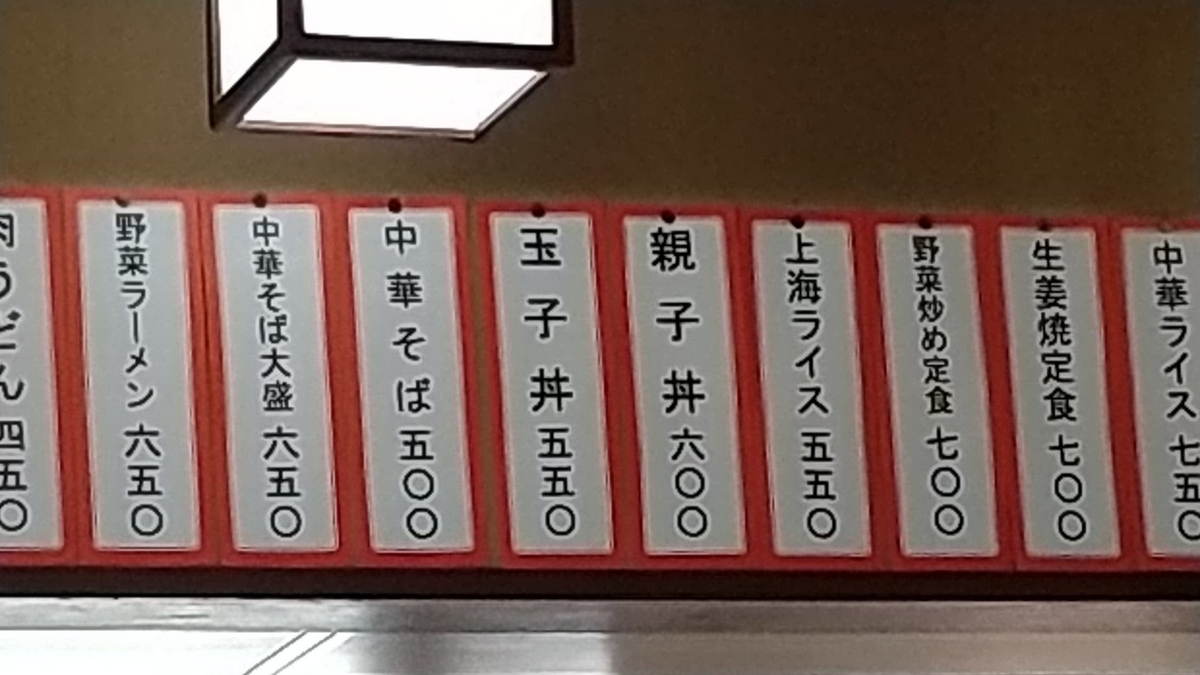 中華ライス 七五〇
生姜焼定食 七〇〇
野菜炒め定食 七〇〇
上海ライス 五五〇
親子丼 六〇〇
玉子丼 五五〇
中華そば 五〇〇
中華そば大盛 六五〇
野菜ラーメン 六五〇
肉うどん 四五〇